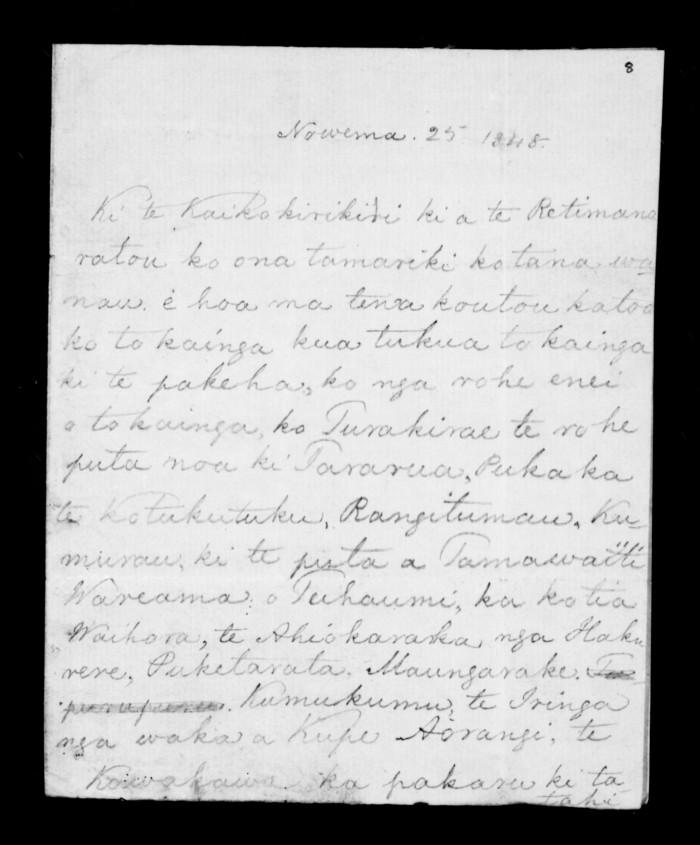 8
Nowema. 25 1848.
Ki te Kaikokirikiri ki a te Retimana
ratou ko ona tamariki ko tana wa-
nau. e hoa ma tena koutou katoa
ko to kainga kua tukua to kainga
ki te pakeha, ko nga rohe enei
o to kainga, ko Turakirae te rohe
puta noa ki Tararua, Pukaka
te Kotukutuku, Rangitumau, Ku-
murau, ki te puta a Tamawaiti
Wareama o Teihaumi, ka kotia
Waihora, te Ahiokaraka nga Haku
rere, Puketarata. Maungarake.
Kumukumu, te Iringa
nga waka a Kupe Aorangi, te
Kawakawa ka pakaru ki ta-
tahi